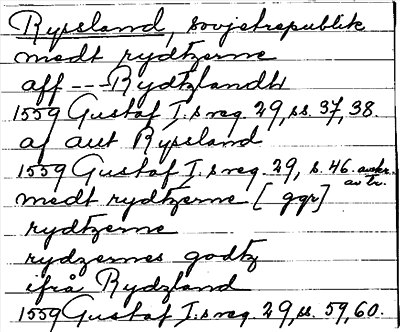 Ryssland, sovjetrepublik
medt rydtzerne
aff --- Rydtzlandh
1559 Gustaf I:s reg. 29, ss. 37, 38.
af aut Ryssland
1559 Gustaf I:s reg. 29, s. 46. ankr.
av tr.
medt rydtzerne [ggr]
rydtzerne
rydzernes godtz
ifrå Rydzland
1559 Gustaf I:s reg. 29, ss. 59, 60.